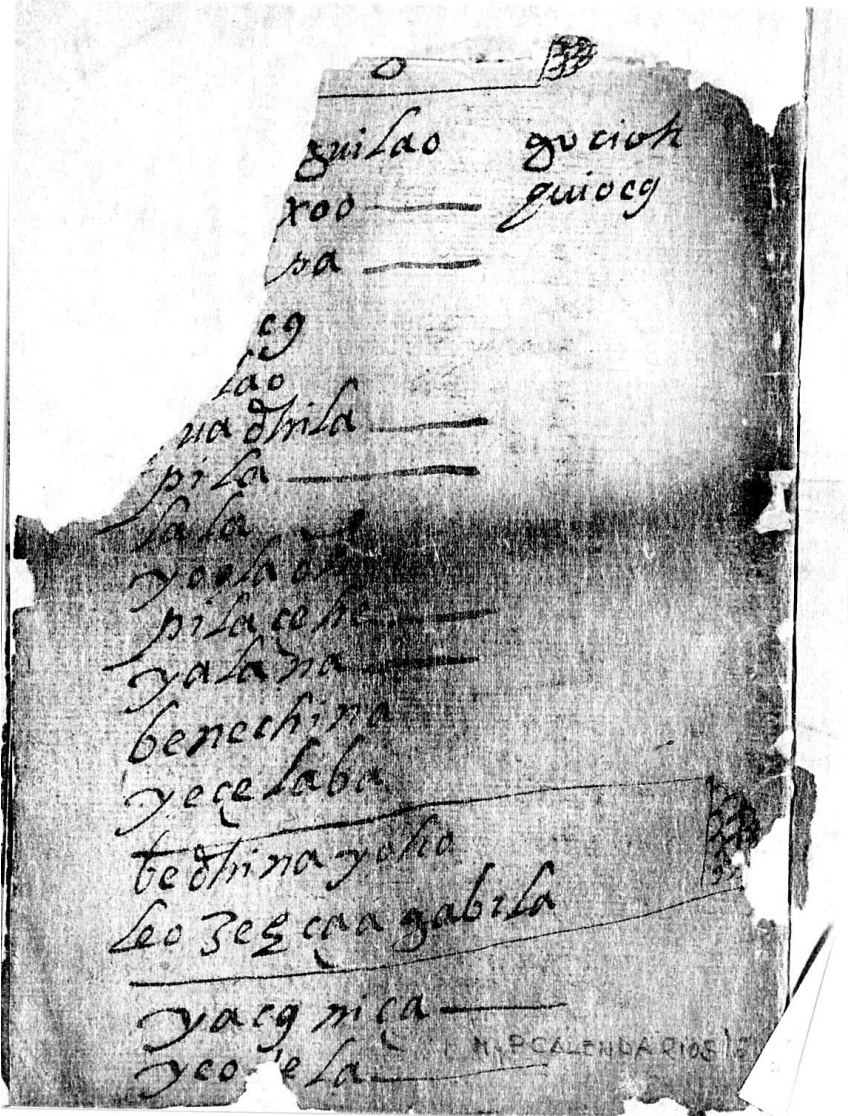 guilao gocioh
xoo quiocg
na
cg
lao
uadhila
pila
lala
yoolaoh
pilacehe
yalana
benechina
yeçelaba
bedhina yoho
leo zee çaa gabila
yacg niça
yeo ela
M y P CALENDARIOS